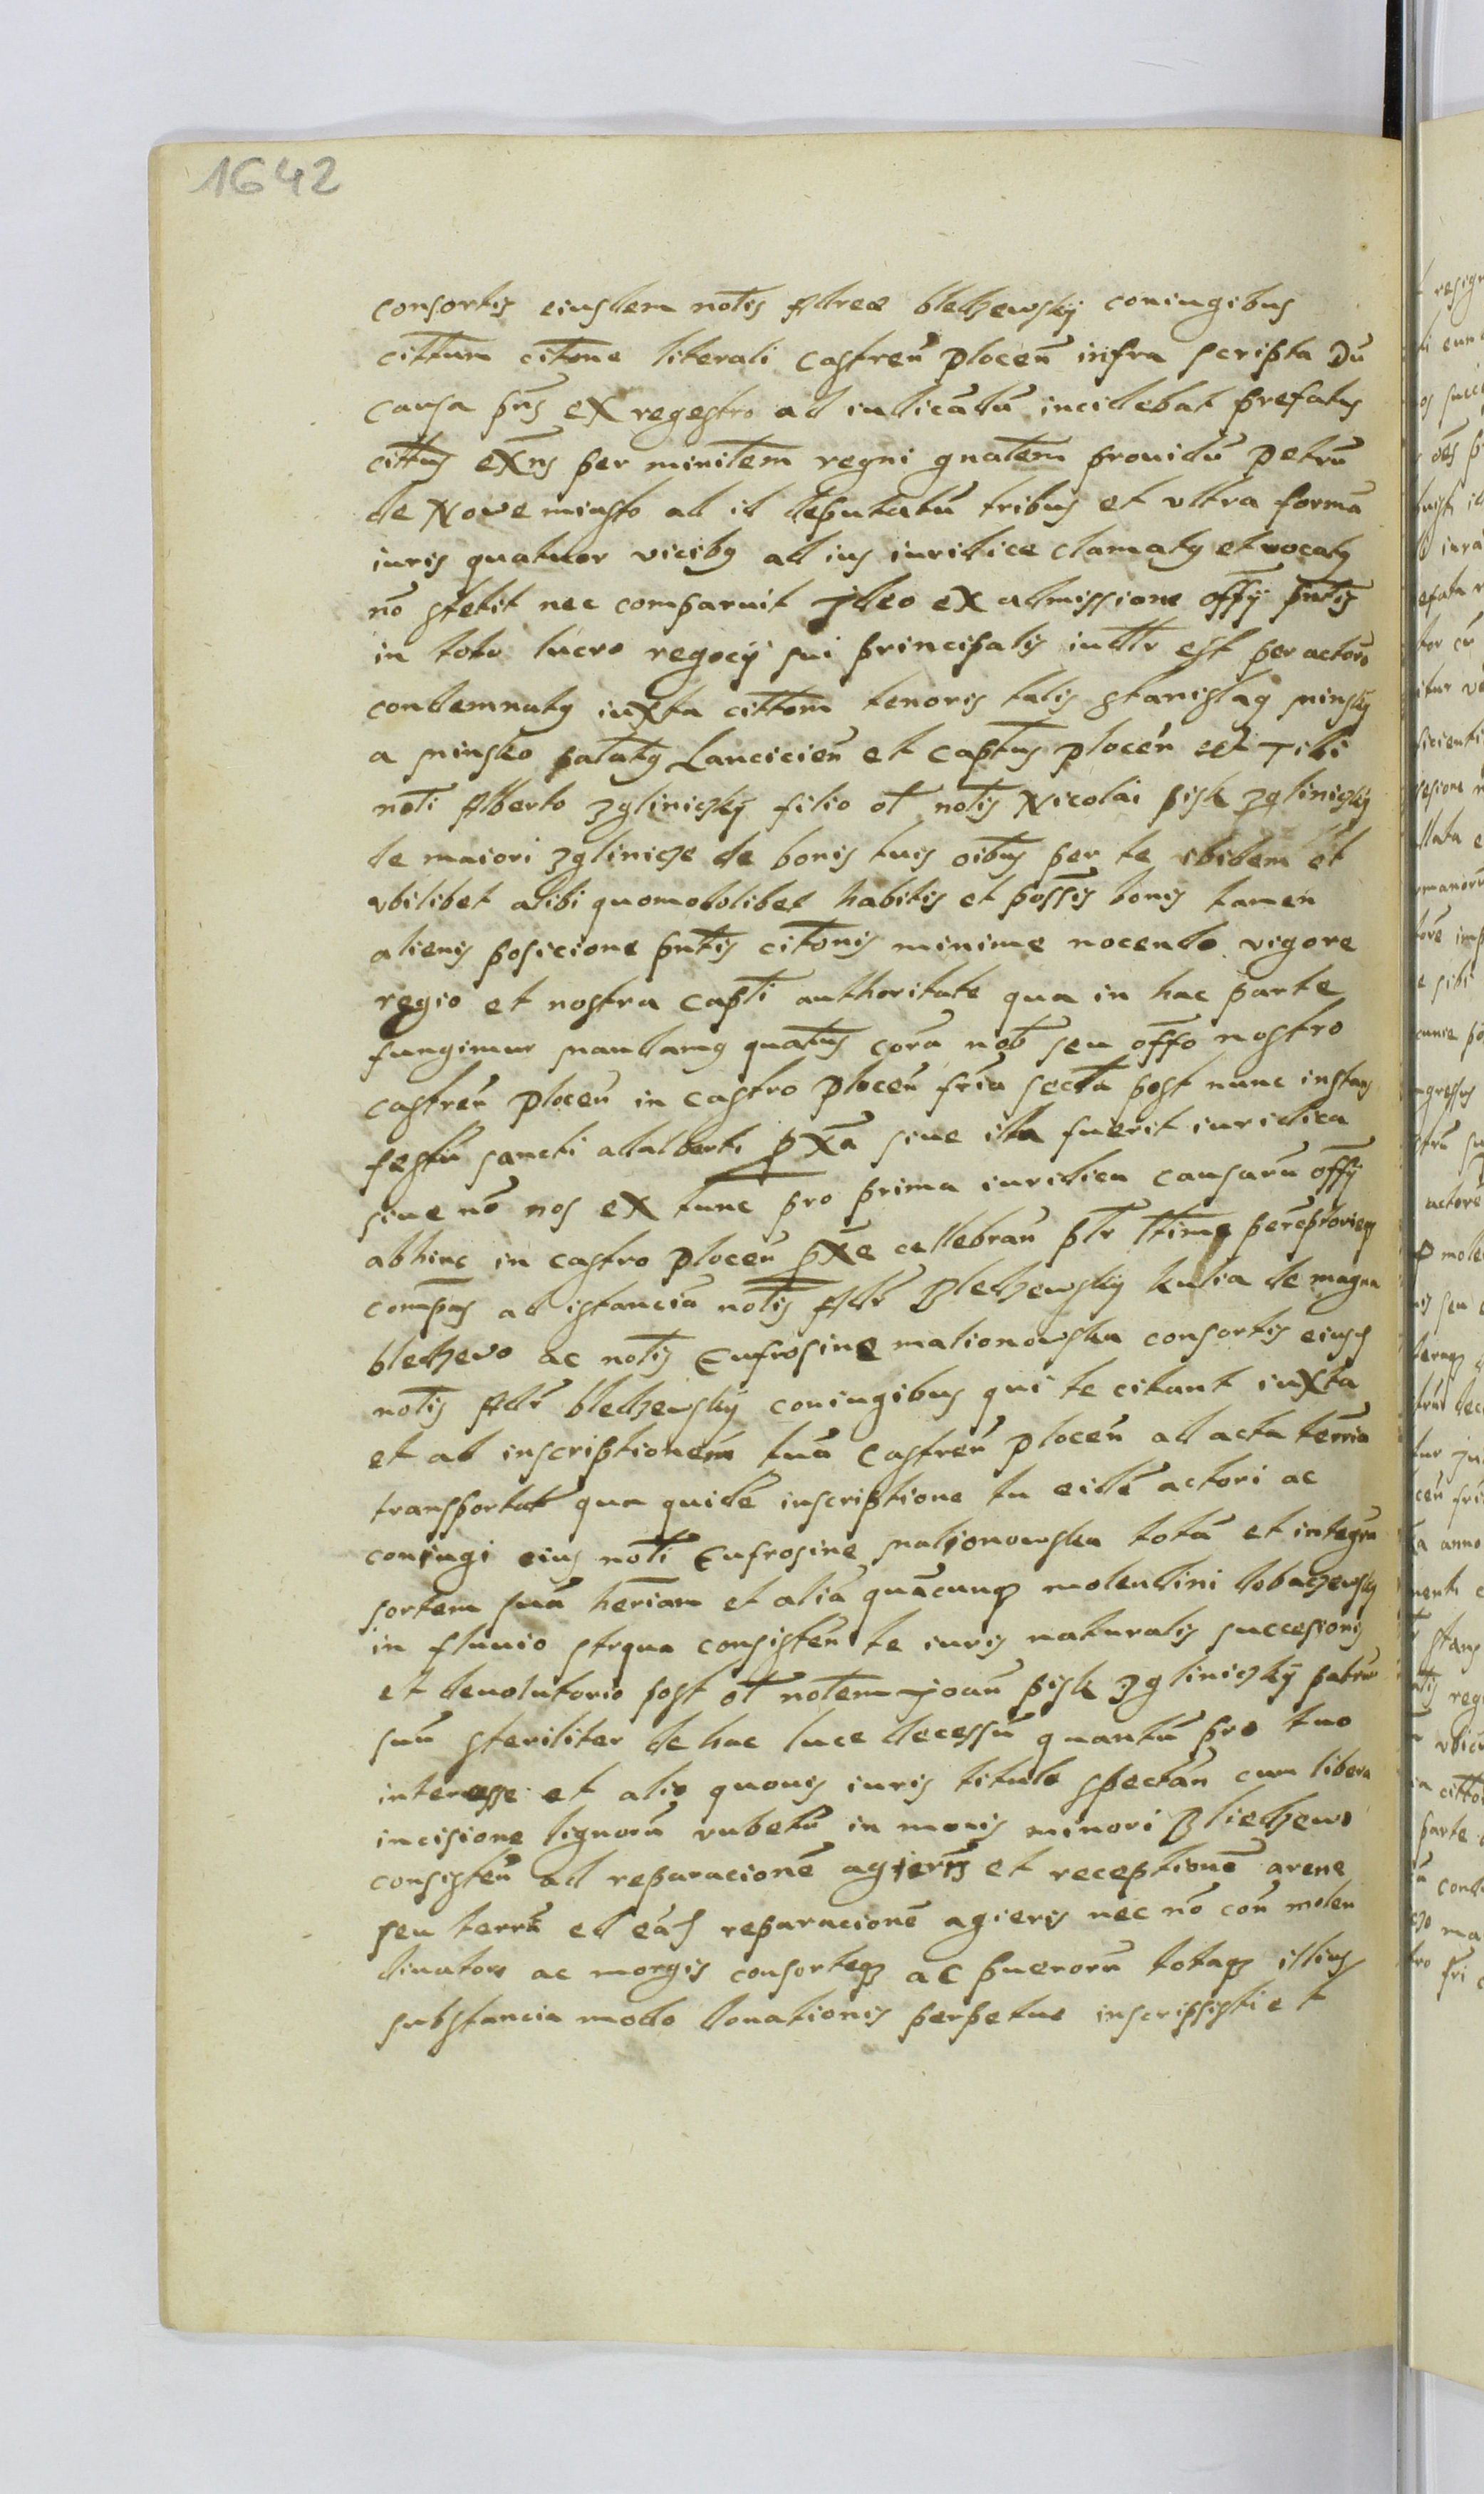 1642
consortis eiusdem notis Adree bledzewskÿ coniugibus
cittum citone literali castren̄ plocen̄ infra scripta Dū
causa pn̄s ex regestro ad iudicādū incidebat prefatus
cittus exn̄s per ministem regni gnatem prouidū petrū
de Nove miasto ad id deputatū tribus et vltra formā
iuris quatuor vicibȝ ad ius iuridice clamatȝ et vocatȝ
nō stetit nec comparuit jdeo ex admissione offÿ pn̄tis
in toto lucro regocÿ sui principalis iudtr est per actorē
condemnatȝ iuxta cittom tenoris talis stanislaȝ minskÿ
a minsko palatȝ Lancicien̄ et captus plocen̄ est Tibi
noti Alberto zglinickÿ filio ol notis Nicolai pisk zglinickÿ
de maiori zglinicze de bonis tuis oibus per te ibidem et
vbilibet alibi quomodolibet habitis et possis bonis tamen
alienis posicione pn̄tis citonis minime nocendo vigore
regio et nostra capti authoritate qua in hac parte
fungimur mandamȝ quatus corā nob seu offo nostro
castren̄ plocen̄ in castro plocen̄ fria secta post nunc instans
festū sancti adalberti pxa siue illa fuerit iuridica
siue nō nos ex tunc pro prima iuridica causarū offÿ
abhinc in castro plocen̄ pxe cellebran̄ ptr ttime pereptorieqȝ
compas ad istanciā notis Adr Bledzewskÿ kulia de magna
bledzevo ac notis Eufrosine malionowska consortis eiusd
notis Adr bledzewskÿ coniugibus qui te citant iuxta
et ad inscriptionem tuā castren̄ plocen̄ ad acta terria
transportat qua quidē inscriptione tu eidē actori ac
coniugi eius noti Eufrosine malionowska totā et integra
sortem suā heriam et aliā quācunqȝ molendini dobaczewskÿ
in fluuio strqua consisten̄ te iuris naturalis succesionis
et deuolutorio post ol notem joan̄ pisk zglinickÿ patru
suū steriliter de hac luce decessū quantū pro tuo
interesse et alio quouis iuris titulo spectan̄ cum libera
incisione lignorū rubetū in monis minori Bliedzewo
consisten̄ ad reparacionē agieris et receptionē arene
seu terrā ed eād reparacionē agieris nec nō con̄ molen
dinatore ac morgis consorteqȝ ac puerorū totaqȝ illius
substancia modo donationis perpetue inscripsisti et